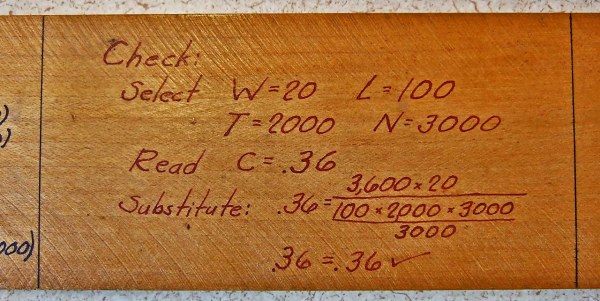 Check:
Select W=20 L=100
T=2000 N=3000
Read C=.36
Substitute: .36= 3,600×20
100×2000×3000
3000
.36=.36 ✓
000)